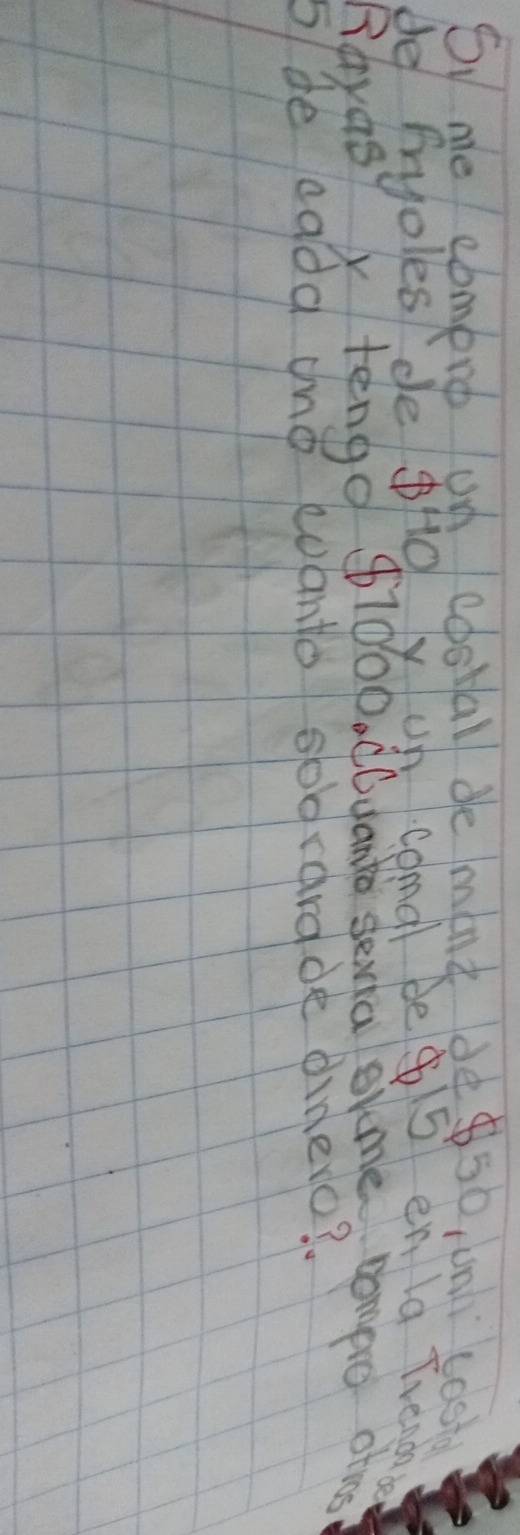 Si me compro un costal de maiz de $50, un costal
de friyoles de $40 y un comal de $15 en la Tienda de
Rayas y tengo $1000. ¿Cuanto sería si me compro otros
5 de cada uno cuanto sobrara de dinero?